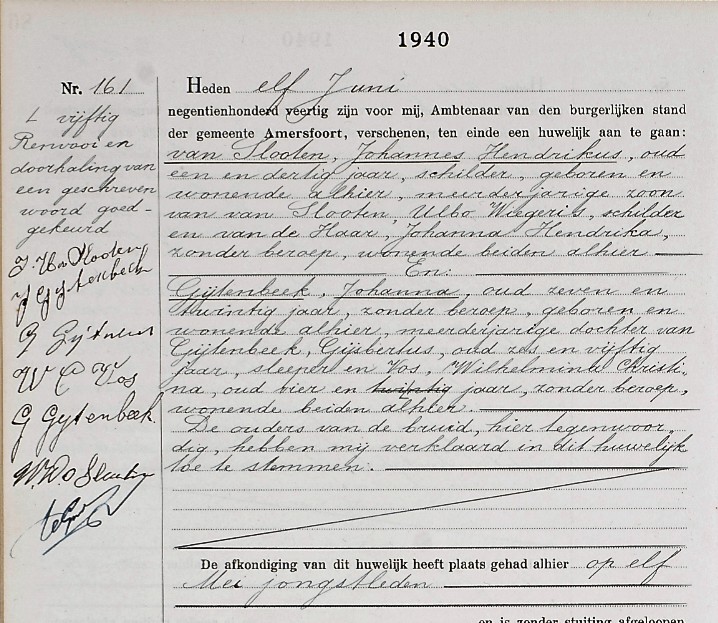 1940
Nr. 161
L vijftig
Renvooi en
doorhaling van
een geschreven
woord goed-
gekeurd
J. H. v Slooten
J Gijtenbeek
G Gijtenbeek
W C Vos
G Gijtenbeek.
Heden elf Juni
negentienhonderd veertig zijn voor mij, Ambtenaar van den burgerlijken stand
der gemeente Amersfoort, verschenen, ten einde een huwelijk aan te gaan:
van Slooten, Johannes Hendrikus, oud
een en dertig jaar, schilder, geboren en
wonende alhier, meerderjarige zoon
van van Slooten, Ulbo Wiegeris, schilder
en van de Haar, Johanna Hendrika,
zonder beroep, wonende beiden alhier
En:
Gijtenbeek, Johanna, oud zeven en
twintig jaar, zonder beroep, geboren en
wonende alhier, meerderjarige dochter van
Gijtenbeek, Gijsbertus, oud zes en vijftig
jaar, sleeper en Vos, Wilhelmina Christi-
na, oud vier en twintig jaar, zonder beroep,
wonende beiden alhier.
De ouders van de bruid, hier tegenwoor-
dig, hebben mij verklaard in dit huwelijk
toe te stemmen.
De afkondiging van dit huwelijk heeft plaats gehad alhier op elf
Mei jongstleden
en is zonder stuiting afgeloopen